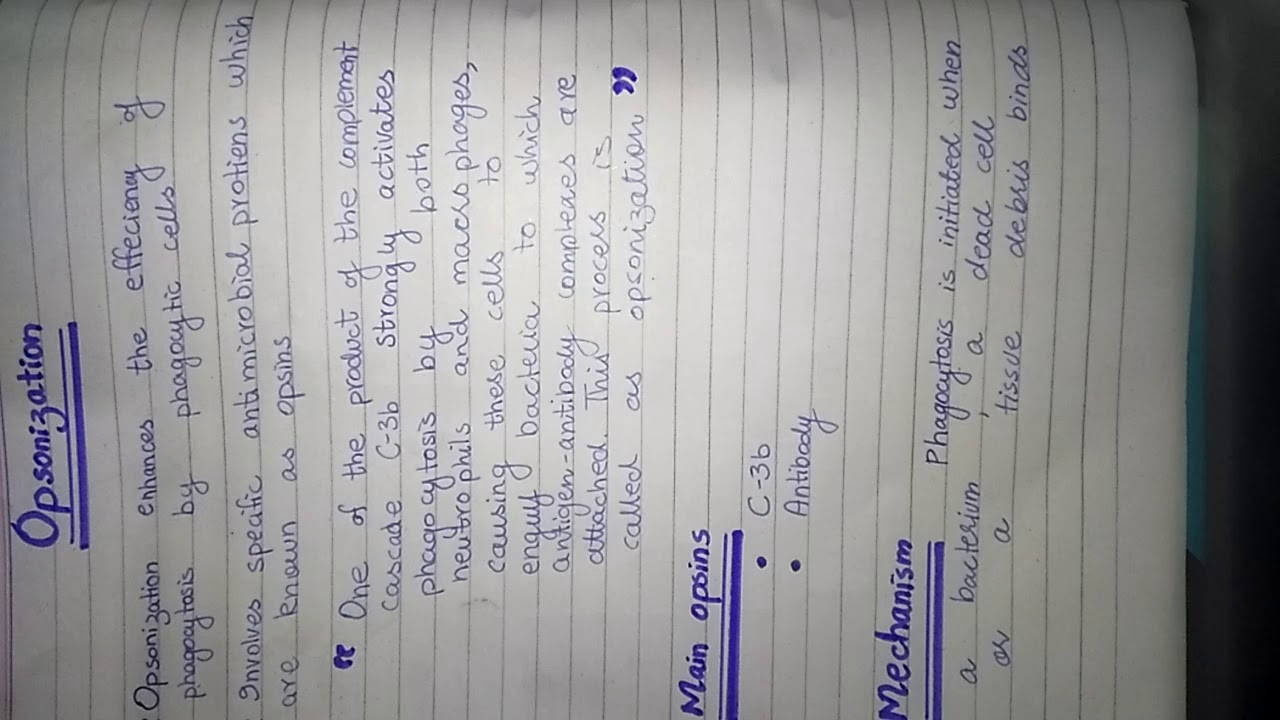 Opsonization
Opsonization enhances the effeciency of
phagocytosis by phagoytic cells
Involves specific antimicrobial protiens which
are known as opsins
" One of the product of the complement
cascade C-3b strongly activates
phagocytosis by both
neutrophils and macrophages,
causing these cells to
engulf bacteria to which
antigen-antibody complexes are
attached This process is
called as opsonization "
Main opsins
• C-3b
• Antibody
Mechanism Phagocytosis is initiated when
a bacterium , a dead cell
or a tissue debris binds